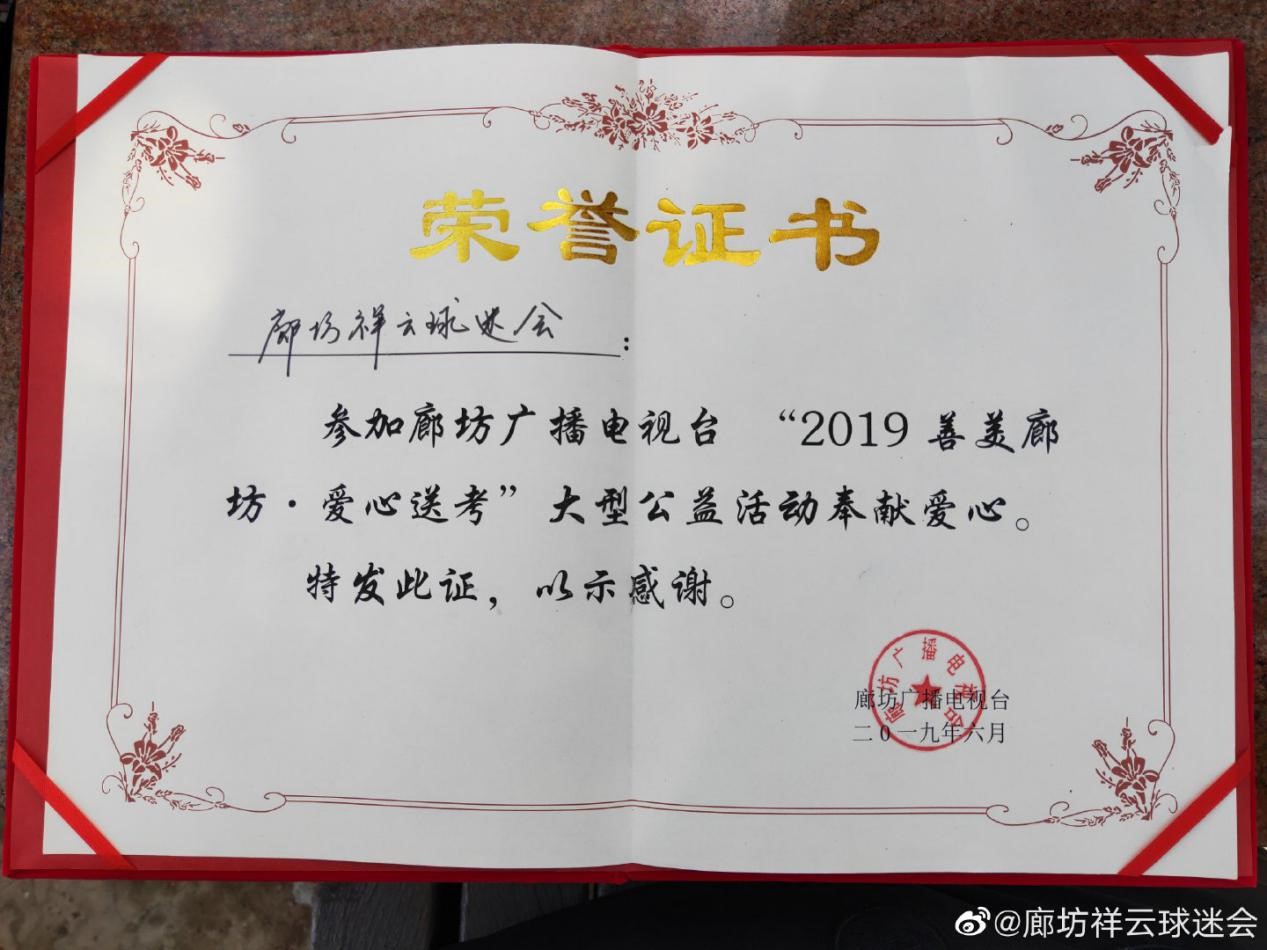 荣誉证书
廊坊祥云球迷会：
参加廊坊广播电视台 “2019善美廊
坊·爱心送考”大型公益活动奉献爱心。
特发此证，以示感谢。
廊坊广播电视台
廊坊广播电视台
二0一九年六月
@廊坊祥云球迷会